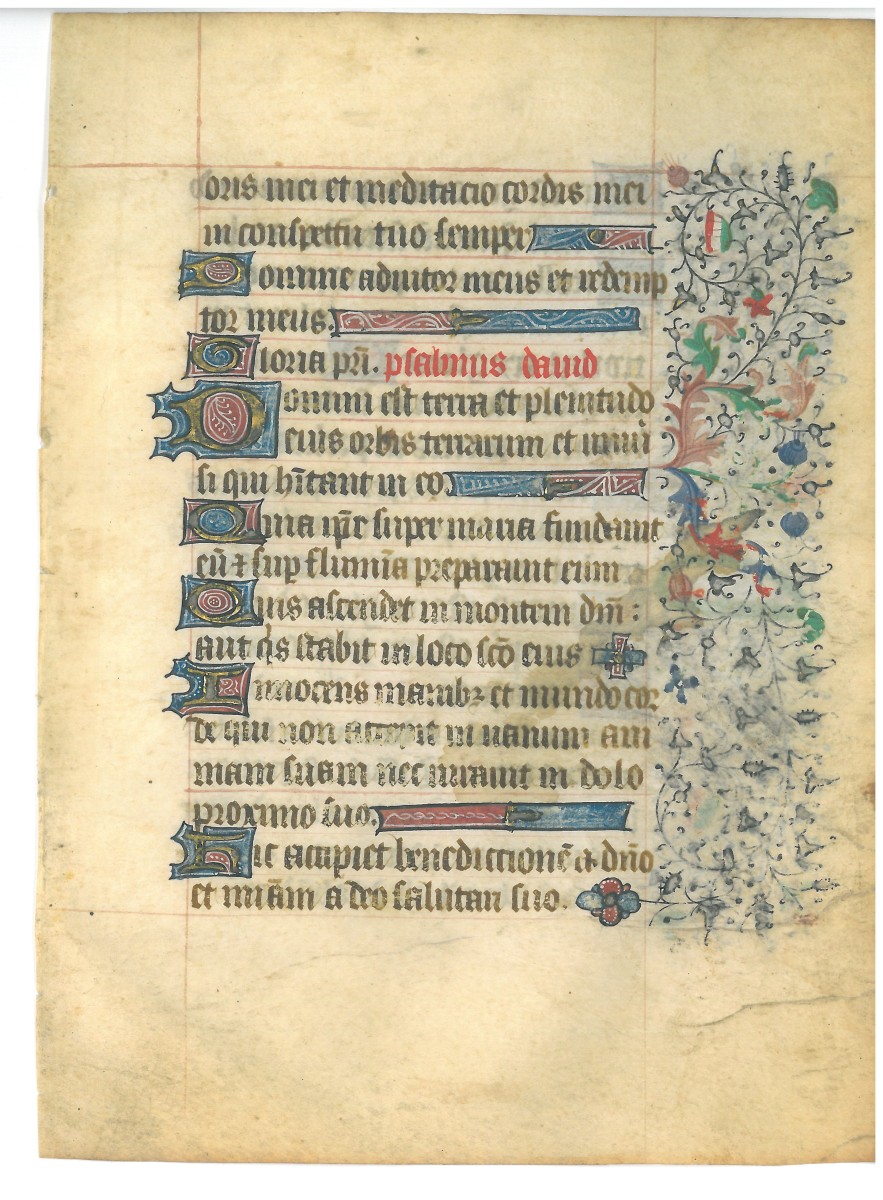 oris mei et meditacio cordis mei
in conspectu tuo semper
Domine adiutor meus et redemp
tor meus.
Gloria pr̄i. psalmus dauid
Domini est terra et plenitudo
eius orbis terrarum et uniu̅
si qui hītant in eo
Quia ip̄e super maria fundauit
eū ⁊ sup flumīa preparauit eum
Quis ascendet in montem dm̄:
aut q̇s stabit in loco scō eius
Innocens manibꝫ et mundo cor
de qui non accepit in uanum ani
mam suam nec iurauit in dolo
proximo suo.
Hic accipiet benedictionē a dn̄o
et mīam a deo salutari suo.